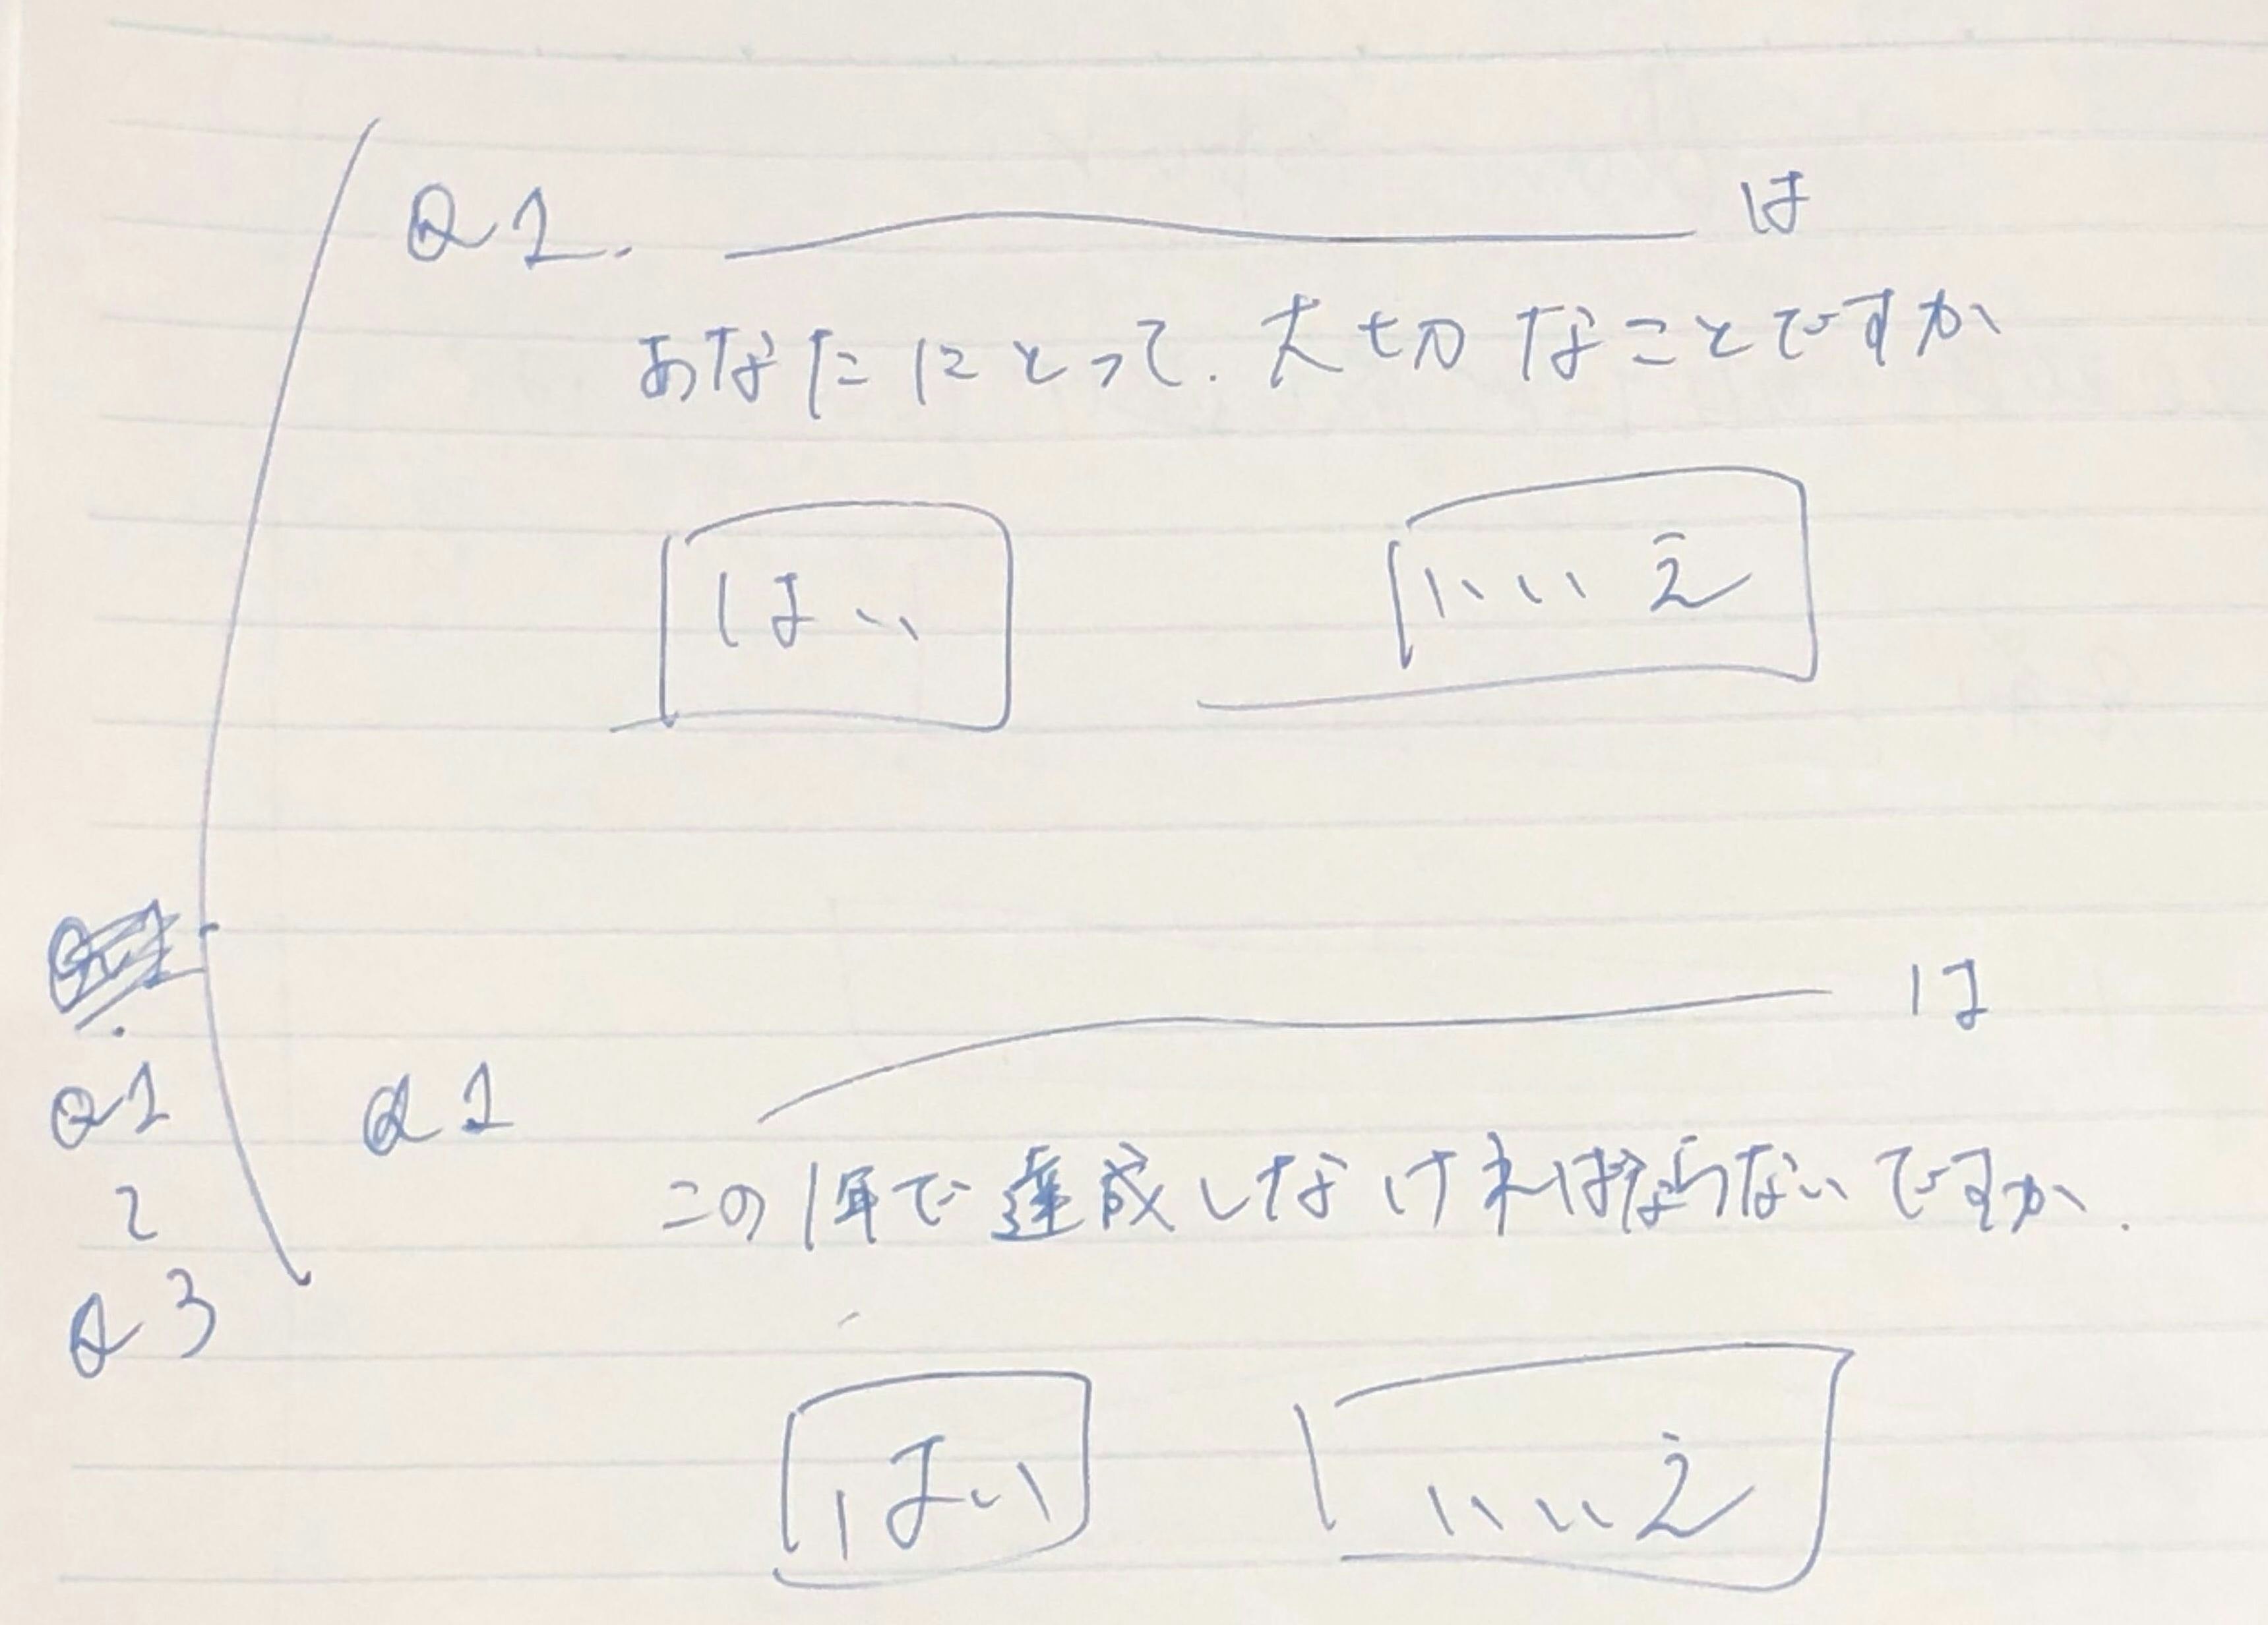 Q1. は
あなたにとって. 大切なことですか
はい いいえ
は
Q1
この1年で達成しなければならないですか.
はい いいえ
Q1
2
Q3